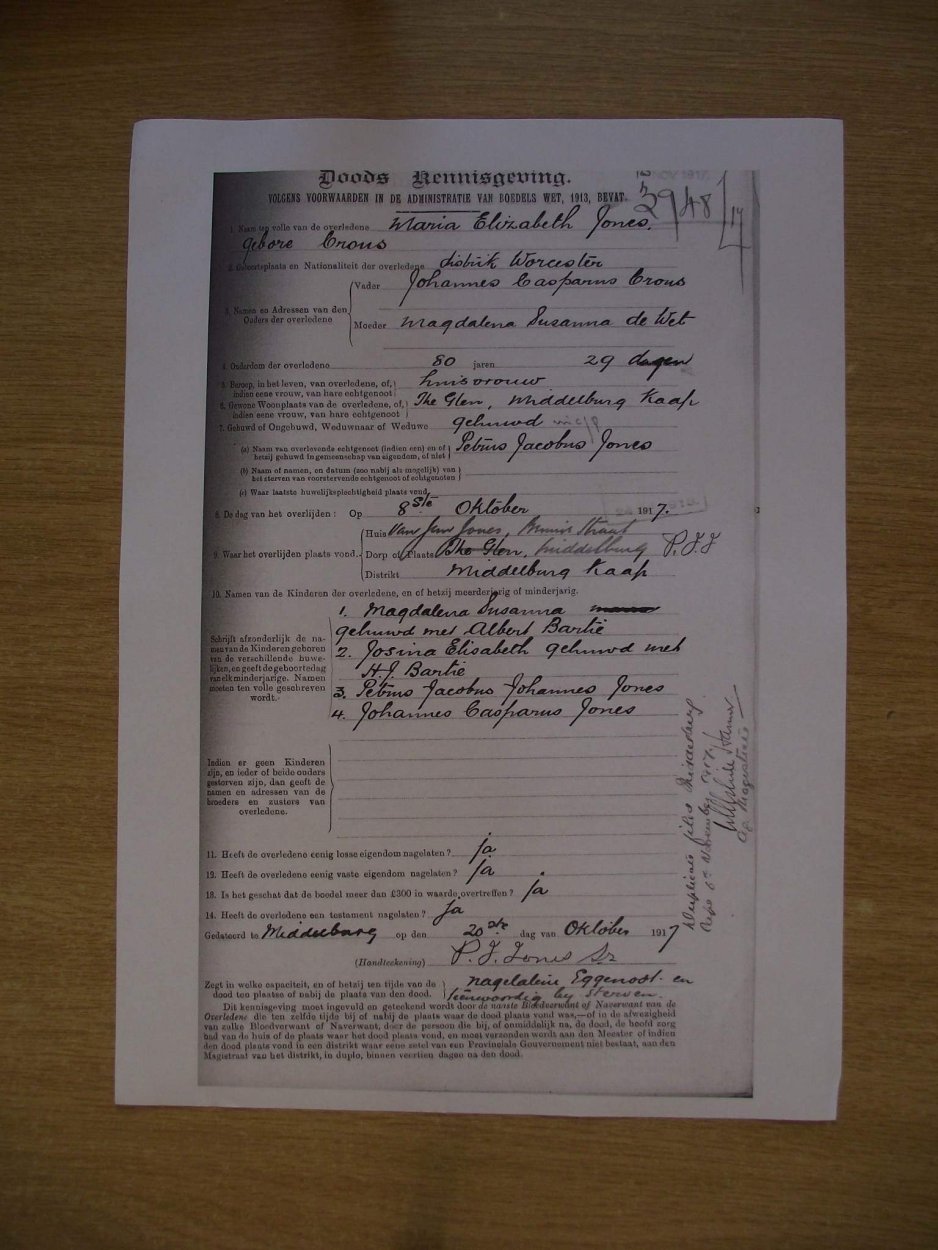 Doods Kennisgeving.
VOLGENS VOORWAARDEN IN DE ADMINISTRATIE VAN BOEDELS WET, 1913, BEVAT.
3948
17
1. Naam ten volle van de overledene Maria Elizabeth Jones.
gebore Crous
2. Geboorteplaats en Nationaliteit der overledene distrik Worcester
3. Namen en Adressen van den Ouders der overledene
Vader Johannes Casparus Crous
Moeder Magdalena Susanna de Wet
4. Ouderdom der overledene 80 jaren 29 dagen
5. Beroep, in het leven, van overledene, of, indien eene vrouw, van hare echtgenoot huisvrouw
6. Gewone Woonplaats van de overledene, of, indien eene vrouw, van hare echtgenoot The Glen, Middelburg Kaap
7. Gehuwd of Ongehuwd, Weduwnaar of Weduwe gehuwd
(a) Naam van overlevende echtgenoot (indien een) en of hetzij gehuwd in gemeenschap van eigendom, of niet Petrus Jacobus Jones
(b) Naam of namen, en datum (zoo nabij als mogelijk) van het sterven van voorstervende echtgenoot of echtgenoten
(c) Waar laatste huwelijksplechtigheid plaats vond
8. De dag van het overlijden: Op 8ste Oktober 1917.
9. Waar het overlijden plaats vond.
Huis van Jones, Straat
Dorp of Plaats The Glen, Middelburg P.J.J
Distrikt Middelburg Kaap
10. Namen van de Kinderen der overledene, en of hetzij meerderjarig of minderjarig.
Schrijft afzonderlijk de namen van de Kinderen geboren van de verschillende huwelijken, en geeft de geboortedag van elk minderjarige. Namen moeten ten volle geschreven wordt.
1. Magdalena Susanna
gehuwd met Albert Bartie
2. Josina Elisabeth gehuwd met
H.J. Bartie
3. Petrus Jacobus Johannes Jones
4. Johannes Casparus Jones
Indien er geen Kinderen zijn, en ieder of beide ouders gestorven zijn, dan geeft de namen en adressen van de broeders en zusters van overledene.
11. Heeft de overledene eenig losse eigendom nagelaten? ja
12. Heeft de overledene eenig vaste eigendom nagelaten? ja
13. Is het geschat dat de boedel meer dan £300 in waarde overtreffen? ja
14. Heeft de overledene een testament nagelaten? ja
Gedateerd te Middelburg op den 20ste dag van Oktober 1917
(Handteekening) P. J. Jones Sr
Zegt in welke capaciteit, en of hetzij ten tijde van de dood ten plaatse of nabij de plaats van den dood. nagelatene Eggenoot en
teenwoordig by sterven.
Dit kennisgeving moet ingevuld en geteekend wordt door de naaste Bloedverwant of Naverwant van de
Overledene die ten zelfde tijde bij of nabij de plaats waar de dood plaats vond was,—of in de afwezigheid
van zulke Bloedverwant of Naverwant, door de persoon die bij, of onmiddelijk na, de dood, de hoofd zorg
had van de huis of de plaats waar het dood plaats vond, en moet verzonden wordt aan den Meester of indien
den dood plaats vond in een distrikt waar eene zetel van een Provinciale Gouvernement niet bestaat, aan den
Magistraat van het distrikt, in duplo, binnen veertien dagen na den dood.